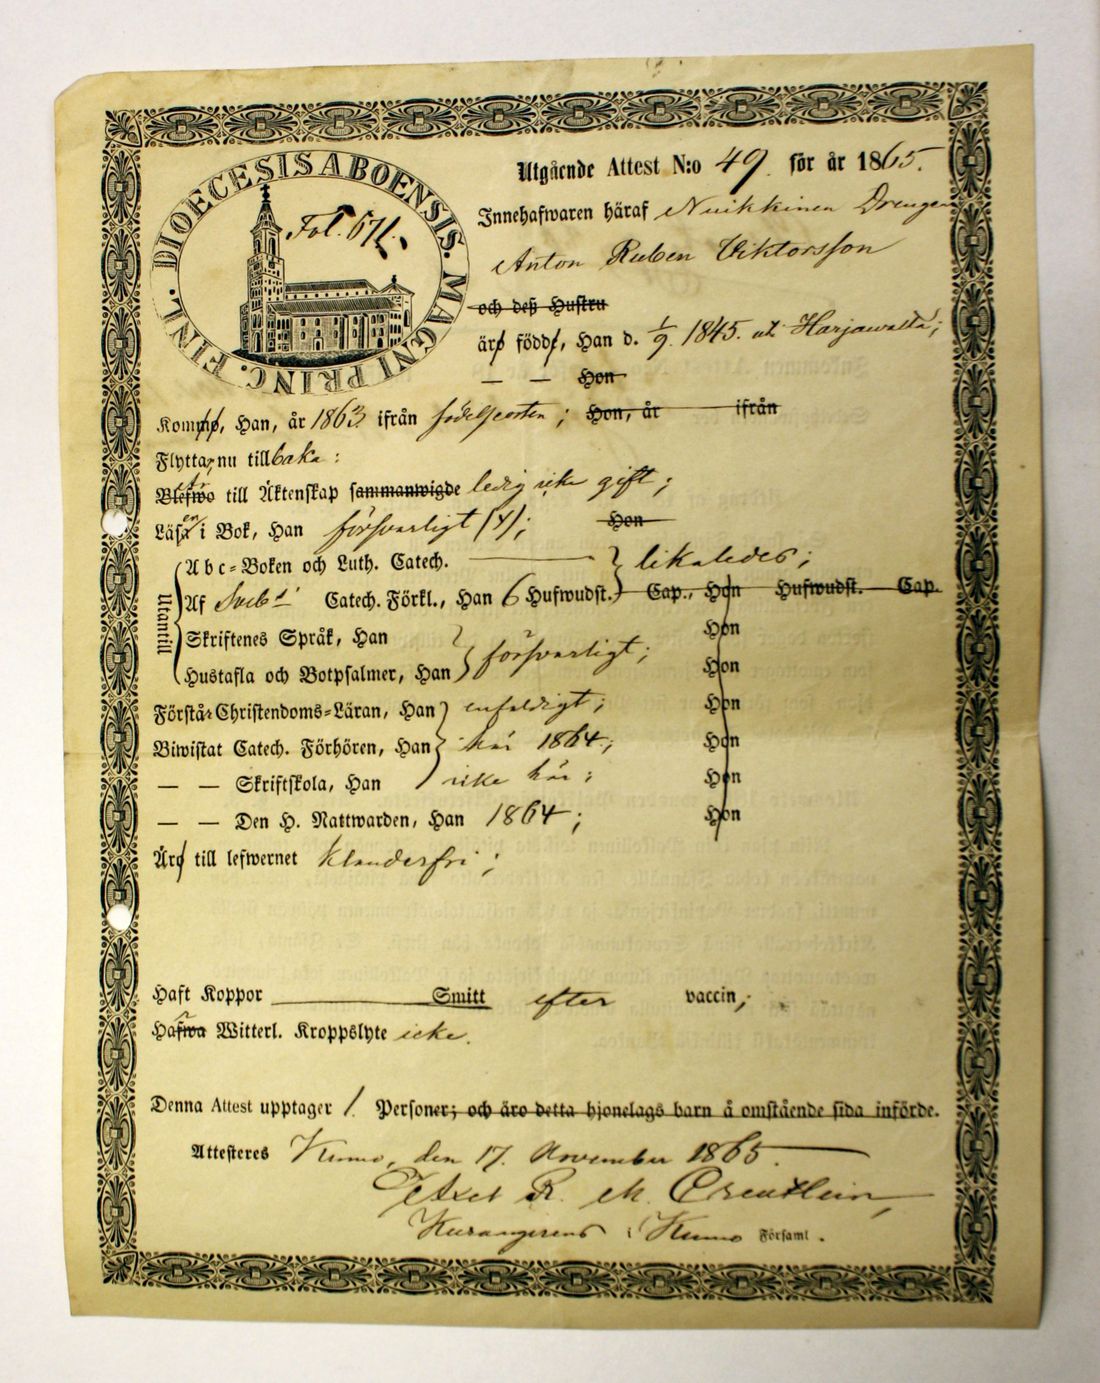 DIOECESIS ABOENSIS. MAGNI PRINC. FINL.
Fol. 571.
Utgående Attest N:o 49. för år 1865.
Innehafwaren häraf Nuikkinen Drengen
Anton Ruben Viktorsson
och deß Hustru
äro födde, Han d. 1/9. 1845. uti Harjawalta;
— — Hon
Kommo, Han, år 1863 ifrån födelseorten; Hon, år ifrån
Flytta, nu tillbaka:
Blefwo Är till Äktenskap sammanwigde ledig icke gift;
Läsa en i Bok, Han försvarligt (+); Hon
Utantill
Abc-Boken och Luth. Catech. likaledes;
Af Sveb:s Catech. Förkl., Han 6 Hufwudst. Cap., Hon Hufwudst. Cap.
Skriftenes Språk, Han Hon
Hustafla och Botpsalmer, Han försvarligt; Hon
Förstå Christendoms-Läran, Han enfaldigt; Hon
Biwistat Catech. Förhören, Han här 1864; Hon
— — Skriftskola, Han icke här; Hon
— — Den H. Nattwarden, Han 1864; Hon
Äro till lefwernet klanderfri;
Haft Koppor Smitt efter vaccin;
Hafwa Witterl. Kroppslyte icke.
Denna Attest upptager 1. Personer; och äro detta hjonelags barn å omstående sida införde.
Attesteres Kumo, den 17. November 1865.
Axel R. M. Creutlein,
i Kumo Församl.